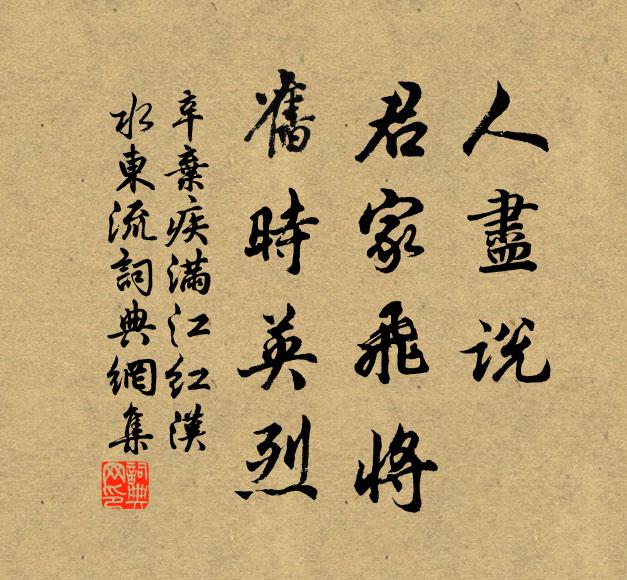 人盡說
君家飛將
舊時英烈
辛棄疾滿江紅漢
水東流詞典網集
詞典网印